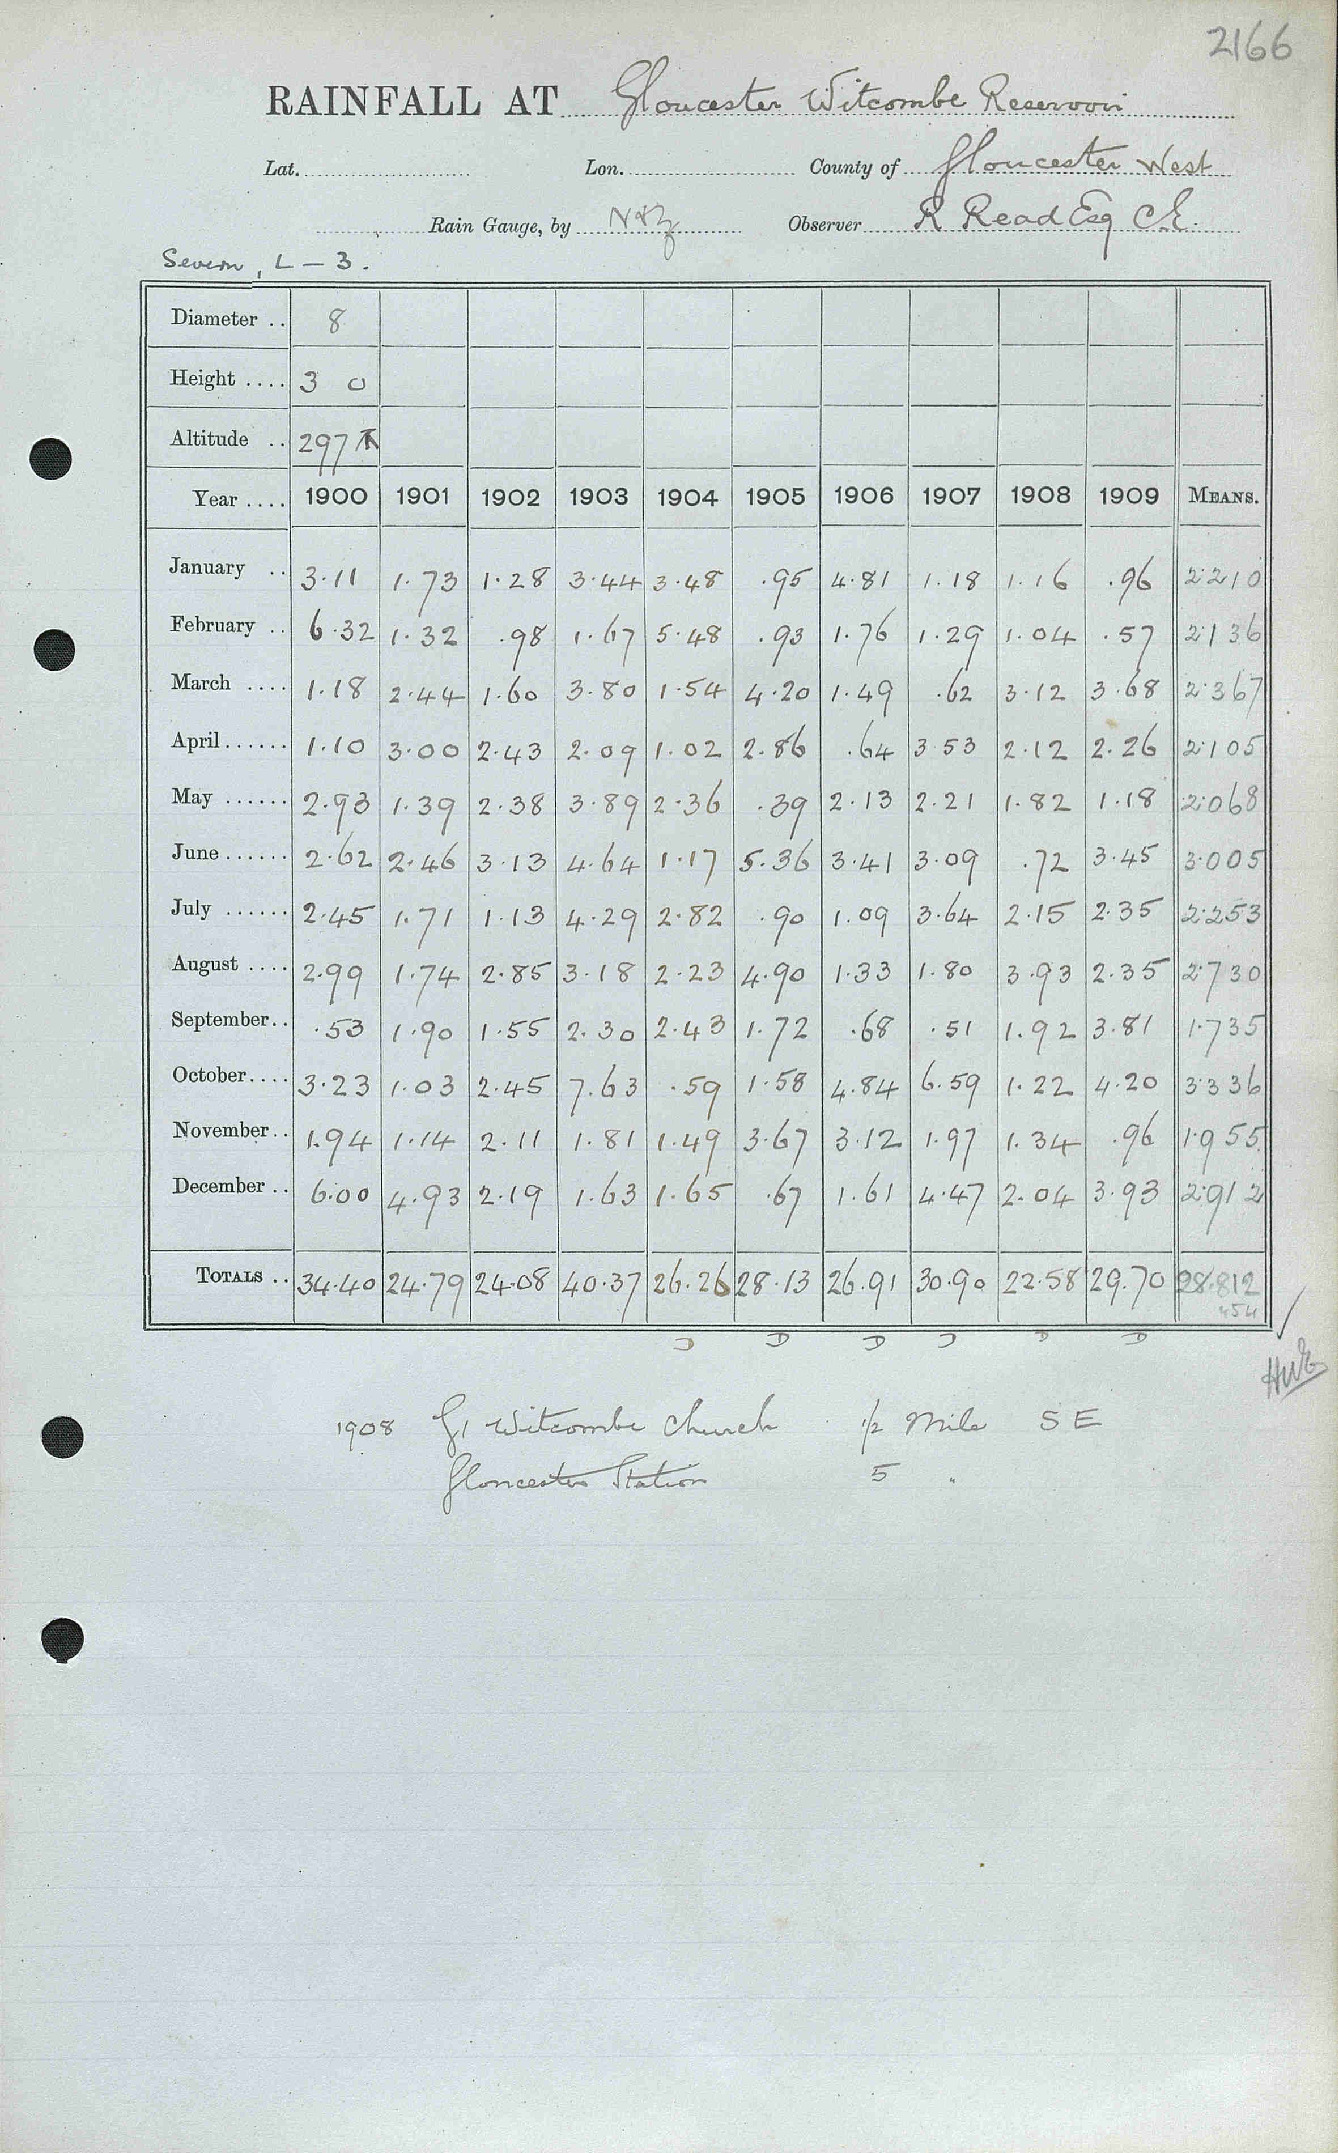 2166
RAINFALL AT Gloucester Witcombe Reservoir
Lat. Lon. County of Gloucester West
Rain Gauge, by N&Z Observer R Read Esq C.E.
Severn, L - 3.
Diameter .. 8
Height .... 3 0
Altitude .. 297
Year .... 1900 1901 1902 1903 1904 1905 1906 1907 1908 1909 MEANS.
January .. 3.11 1.73 1.28 3.44 3.48 .95 4.81 1.18 1.16 .96 2.210
February .. 6.32 1.32 .98 1.67 5.48 .93 1.76 1.29 1.04 .57 2.136
March .... 1.18 2.44 1.60 3.80 1.54 4.20 1.49 .62 3.12 3.68 2.367
April ...... 1.10 3.00 2.43 2.09 1.02 2.86 .64 3.53 2.12 2.26 2.105
May ...... 2.93 1.39 2.38 3.89 2.36 .39 2.13 2.21 1.82 1.18 2.068
June ...... 2.62 2.46 3.13 4.64 1.17 5.36 3.41 3.09 .72 3.45 3.005
July ...... 2.45 1.71 1.13 4.29 2.82 .90 1.09 3.64 2.15 2.35 2.253
August .... 2.99 1.74 2.85 3.18 2.23 4.90 1.33 1.80 3.93 2.35 2.730
September .. .53 1.90 1.55 2.30 2.43 1.72 .68 .51 1.92 3.81 1.735
October .... 3.23 1.03 2.45 7.63 .59 1.58 4.84 6.59 1.22 4.20 3.336
November .. 1.94 1.14 2.11 1.81 1.49 3.67 3.12 1.97 1.34 .96 1.955
December .. 6.00 4.93 2.19 1.63 1.65 .67 1.61 4.47 2.04 3.93 2.912
TOTALS .. 34.40 24.79 24.08 40.37 26.26 28.13 26.91 30.90 22.58 29.70 28.812
D D D D D D
1908 Gt Witcombe Church 1/2 Mile S E
Gloucester Station 5 "